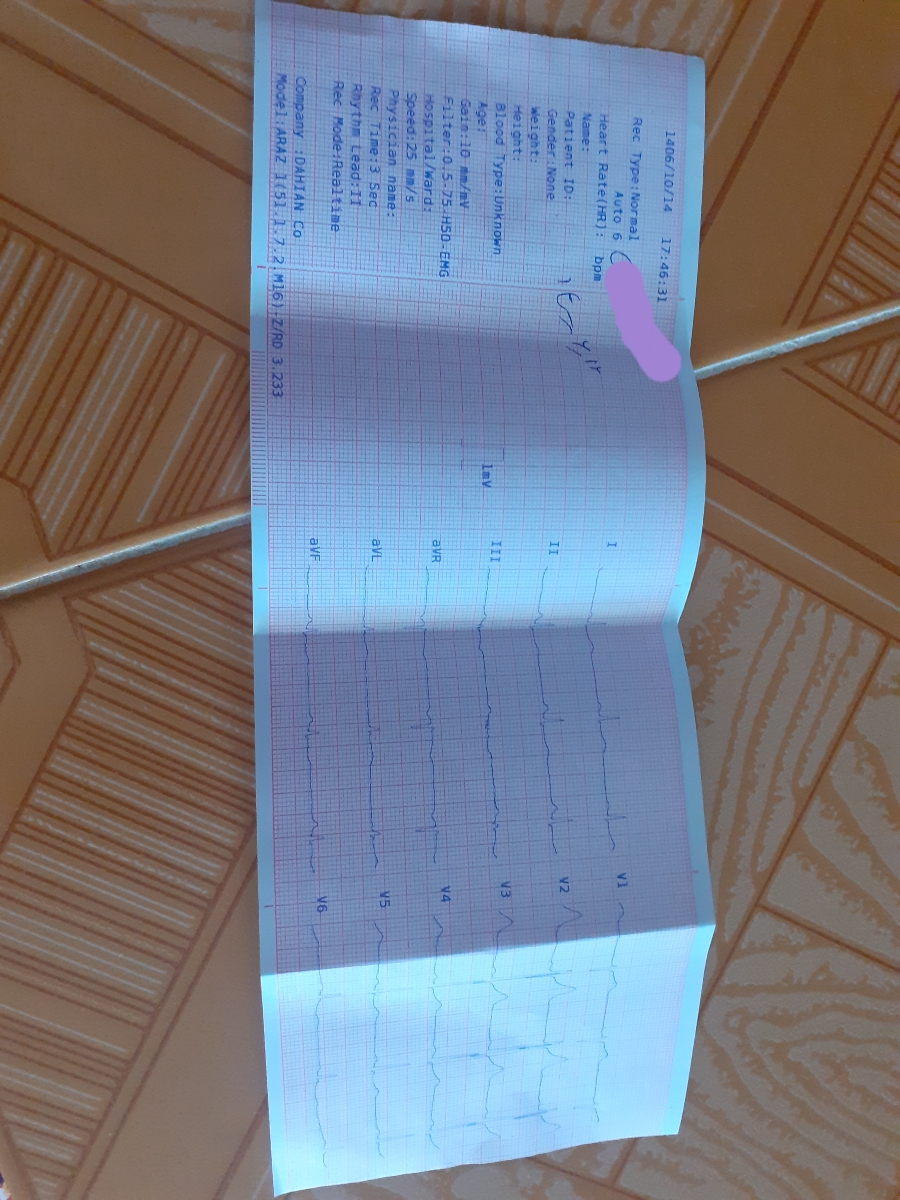 1406/10/14 17:46:31
Rec Type:Normal
Auto 6
Heart Rate(HR): bpm
Name:
Patient ID:
Gender:None
Weight:
Height:
Blood Type:Unknown
Age:
Gain:10 mm/mV
Filter:0.5-75-H50-EMG
Hospital/Ward:
Speed:25 mm/s
Physician name:
Rec Time:3 Sec
Rhythm Lead:II
Rec Mode:Realtime
Company :DAHIAN Co
Model:ARAZ 1(51.1.7.2.M16)-Z/RD 3.233
1mV
I
II
III
aVR
aVL
aVF
V1
V2
V3
V4
V5
V6